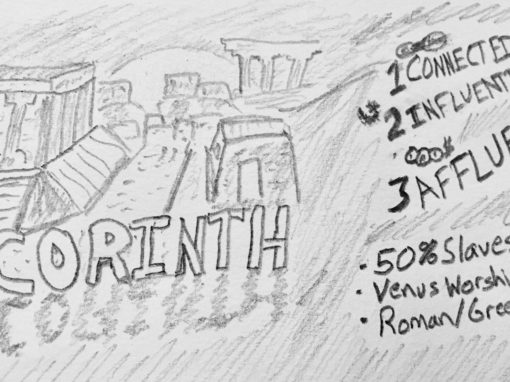 CORINTH
1 CONNECTED
2 INFLUENT
3 AFFLUE
• 50% Slaves
• Venus Worshi
• Roman/Gree